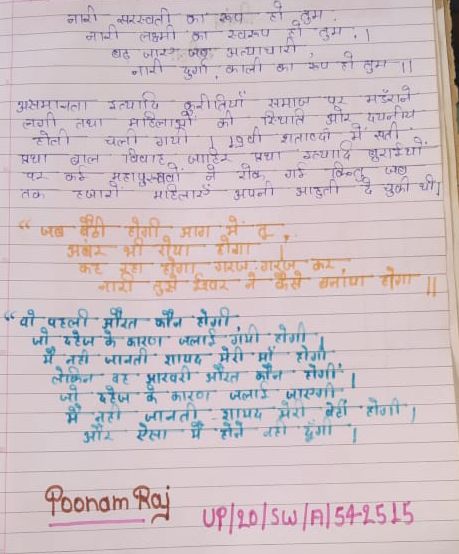 नारी सरस्वती का रूप हो तुम,
नारी लक्ष्मी का स्वरूप हो तुम ।
बढ़ जाए जब अत्याचारी,
नारी दुर्गा, काली का रूप हो तुम ।।
असमानता इत्यादि कुरीतियाँ समाज पर मंडराने
लगी तथा महिलाओं की स्थिति और दयनीय
होती चली गयी । 19वी शताब्दी में सती
प्रथा बाल विवाह जौहर प्रथा इत्यादि बुराईयों
पर कई महापुरुषों ने रोक गई किन्तु जब
तक हजारों महिलाएं अपनी आहुती दे चुकी थी।
“ जब बैठी होगी आग में तू,
अंबर भी रोया होगा ।
कह रहा होगा गरज-गरज कर
नारी तुझे ईश्वर ने कैसे बनाया होगा ।।
“ वो पहली औरत कौन होगी,
जो दहेज के कारण जलाई गयी होगी ।
मैं नही जानती शायद मेरी माँ होगी
लेकिन वह आखरी औरत कौन होगी,
जो दहेज के कारण जलाई जाएगी ।
मैं नही जानती शायद मेरी बेटी होगी ।
और ऐसा मैं होने नही दूँगी ।
Poonam Raj
UP/20/SW/A/54-2515